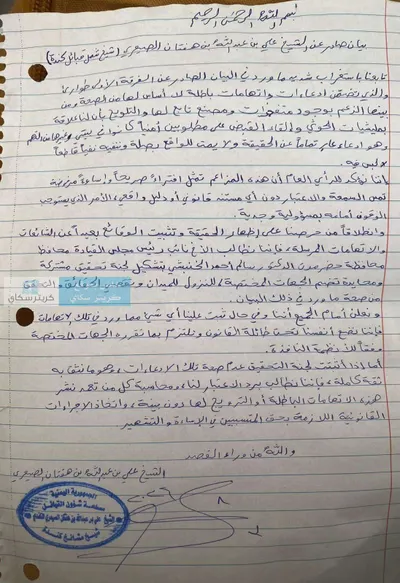 بسم الله الرحمن الرحيم
بيان صادر عن الشيخ علي بن عبدالله بن هفتان الصيعري (شيخ شمل قبائل كندة)
تابعنا باستغراب شديد ما ورد في البيان الصادر عن الفرقة الأولى طوارئ
والذي تضمن ادعاءات واتهامات باطلة لا أساس لها من الصحة ومن
بينها الزعم بوجود متفجرات ومصنع تابع لها والتلويح بأن لنا علاقة
بمليشيات الحوثي وإلقاء القبض على مطلوبين أمنياً كانوا في
وهو ادعاء عار تماماً عن الحقيقة ولا يمت للواقع بصلة وننفيه نفياً قاطعاً
لا لبس فيه
إننا نؤكد للرأي العام أن هذه المزاعم تمثل افتراءً صريحاً وإساءة
تمس السمعة والاعتبار دون أي مستند قانوني أو دليل واقعي، الأمر الذي يستوجب
الوقوف أمامه بمسؤولية وجدية.
وانطلاقاً من حرصنا على إظهار الحقيقة وتثبيت الوقائع بعيداً عن الشائعات
والاتهامات المرسلة، فإننا نطالب الأخ نائب رئيس مجلس القيادة محافظ
محافظة حضرموت الدكتور سالم أحمد الخنبشي بتشكيل لجنة تحقيق مشتركة
ومحايدة تضم الجهات المختصة، للنزول للميدان وتقصي الحقائق والتحقق
من صحة ما ورد في ذلك البيان.
ونعلن أمام الجميع أننا وفي حال ثبت علينا أي شيء مما ورد في تلك الاتهامات
فإننا نضع أنفسنا تحت طائلة القانون ونلتزم بما تقرره الجهات المختصة
وفقاً للأنظمة النافذة.
أما إذا أثبتت لجنة التحقيق عدم صحة تلك الادعاءات، وهو ما نثق به
ثقة كاملة، فإننا نطالب برد الاعتبار لنا، ومحاسبة كل من تعمد نشر
هذه الاتهامات الباطلة أو الترويج لها دون بينة، واتخاذ الإجراءات
القانونية اللازمة بحق المتسببين في الإساءة والتشهير
والله من وراء القصد
الشيخ علي بن عبدالله بن هفتان الصيعري
الجمهورية اليمنية
مصلحة شؤون القبائل
كريتر سكاي